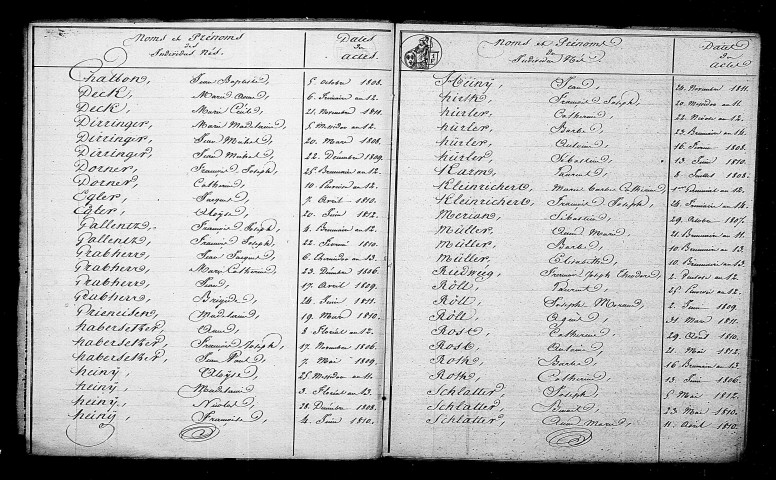 Noms et Prénoms
des
Individus Nés.
Dates
des
actes.
Chatton, Jean Baptiste, 5 octobre 1808.
Deck, Marie Anne, 6 Frimaire an 12.
Deck, Marie Cécile, 21 Novembre 1811.
Dirringer, Marie Madelaine, 5 Messidor an 12.
Dirringer, Jean 20 Mars 1808.
Dirringer, Jean 22 Décembre 1809.
Dorner, François Joseph, 25 Brumaire an 12.
Dorner, Catherine, 10 an 12.
Egler, Jacques, 7 Avril 1810.
Egler, Aloÿse, 20 Juin 1812.
Gallentz, François Joseph, 4 Brumaire an 12.
Gallentz, François Joseph, 22 Février 1810.
Grabherr, Jean Jacques, 6 an 13.
Grabherr, Marie Catherine, 23 Décembre 1806.
Grabherr, Jean, 17 Avril 1809.
Grabherr, Brigide, 24 Juin 1811.
Madelaine, 19 Mars 1810.
habersetzer, Anne, 3 Floréal an 12.
habersetzer, François Joseph, 17 Novembre 1806.
habersetzer, Jean 7 Mai 1809.
heinÿ, Aloÿse, 25 Messidor an 11.
heinÿ, Madelaine, 3 Floréal an 13.
heinÿ, Nicolas, 28 Décembre 1808.
heinÿ, Françoise, 4 Juin 1810.
Noms et Prénoms
des
Individus Nés
Dates
des
actes
Heinÿ, Jean, 24 Novembre 1811.
hirth, François Joseph, 20 Messidor an 11.
hürler, Catherine, 22 Nivose an 12.
hürler, Barbe, 23 Brumaire an 14.
hürler, Antoine, 16 Février 1808.
hürler, Sébastien, 13 Juin 1810.
Karm, Laurent, 8 Juillet 1808.
Kleinrichert, Marie Barbe Catherine, an 12.
Kleinrichert, François Joseph, 24 Frimaire an 14.
Merian, Sébastien, 29 Octobre 1807.
Müller, Anne Marie, 21 Brumaire an 11.
Müller, Barbe, 10 Brumaire an 13.
Müller, Elisabethe, 10 Brumaire an 13.
Riedweg, François Joseph Théodore, 2 Ventose an 12.
Röll, Laurent, 25 an 12.
Röll, Joseph Morand, 2 Juin 1809.
Röll, 31 Mars 1811.
Rost, Catherine, 29 Août 1810.
Rost, Antoine, 21 Mai 1812.
Roth, Barbe, 16 Brumaire an 13.
Roth, Catherine, 13 Juin 1806.
Schlatter, Joseph, 5 Mai 1812.
Schlatter, 23 Mai 1810.
Schlatter, Anne Marie, 11 Avril 1810.